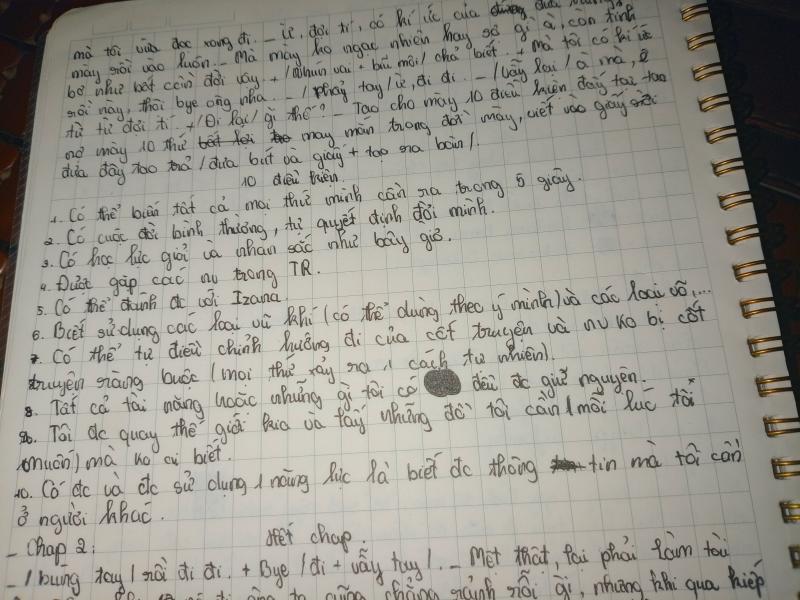 mà tôi vừa đọc xong đi. - ừ, đợi tí, có kí ức của
mày rồi vào luôn. - Mà mày ko ngạc nhiên hay sợ gì à, còn tỉnh
bơ như bớt cơn đổi vậy. + /nhún vai + bĩu môi/ chả biết. + Mà tôi có kí ức
rồi này, thôi bye ông nha. - /phẩy tay/ ừ, đi đi. - /vẫy lại/ à mà, ê
từ từ đợi tí. + /Đi lại/ gì thế? - Tao cho mày 10 điều kiện, đấy tại tao
nợ mày 10 thứ may mắn trong đời mày, viết vào giấy rồi
đưa đây tao trả /đưa bút và giấy + tạo ra bàn/.
10 điều kiện.
1. Có thể biến tất cả mọi thứ mình cần ra trong 5 giây.
2. Có cuộc đời bình thường, tự quyết định đời mình.
3. Có học lực giỏi và nhan sắc như bây giờ.
4. Đượt gặp các nv trong TR.
5. Có thể đánh đc với Izana.
6. Biết sử dụng các loại vũ khí (có thể dùng theo ý mình) và các loại võ,...
7. Có thể tự điều chỉnh hướng đi của cốt truyện và nv ko bị cốt
truyện ràng buộc (mọi thứ xảy ra 1 cách tự nhiên).
8. Tất cả tài năng hoặc những gì tôi có đều đc giữ nguyên.
9. Tôi đc quay thế giới kia và lấy những đồ tôi cần (mỗi lúc tôi
muốn) mà ko cị biết.
10. Có đc và đc sử dụng 1 năng lực là biết đc thông tin mà tôi cần
ở người khác.
Hết chap.
- Chap 2:
- /búng tay/ rồi đi đi. + Bye /đi + vẫy tay/. - Mệt thật, lại phải làm tài
ông ta cũng chẳng rảnh rỗi gì, nhưng khi qua kiếp